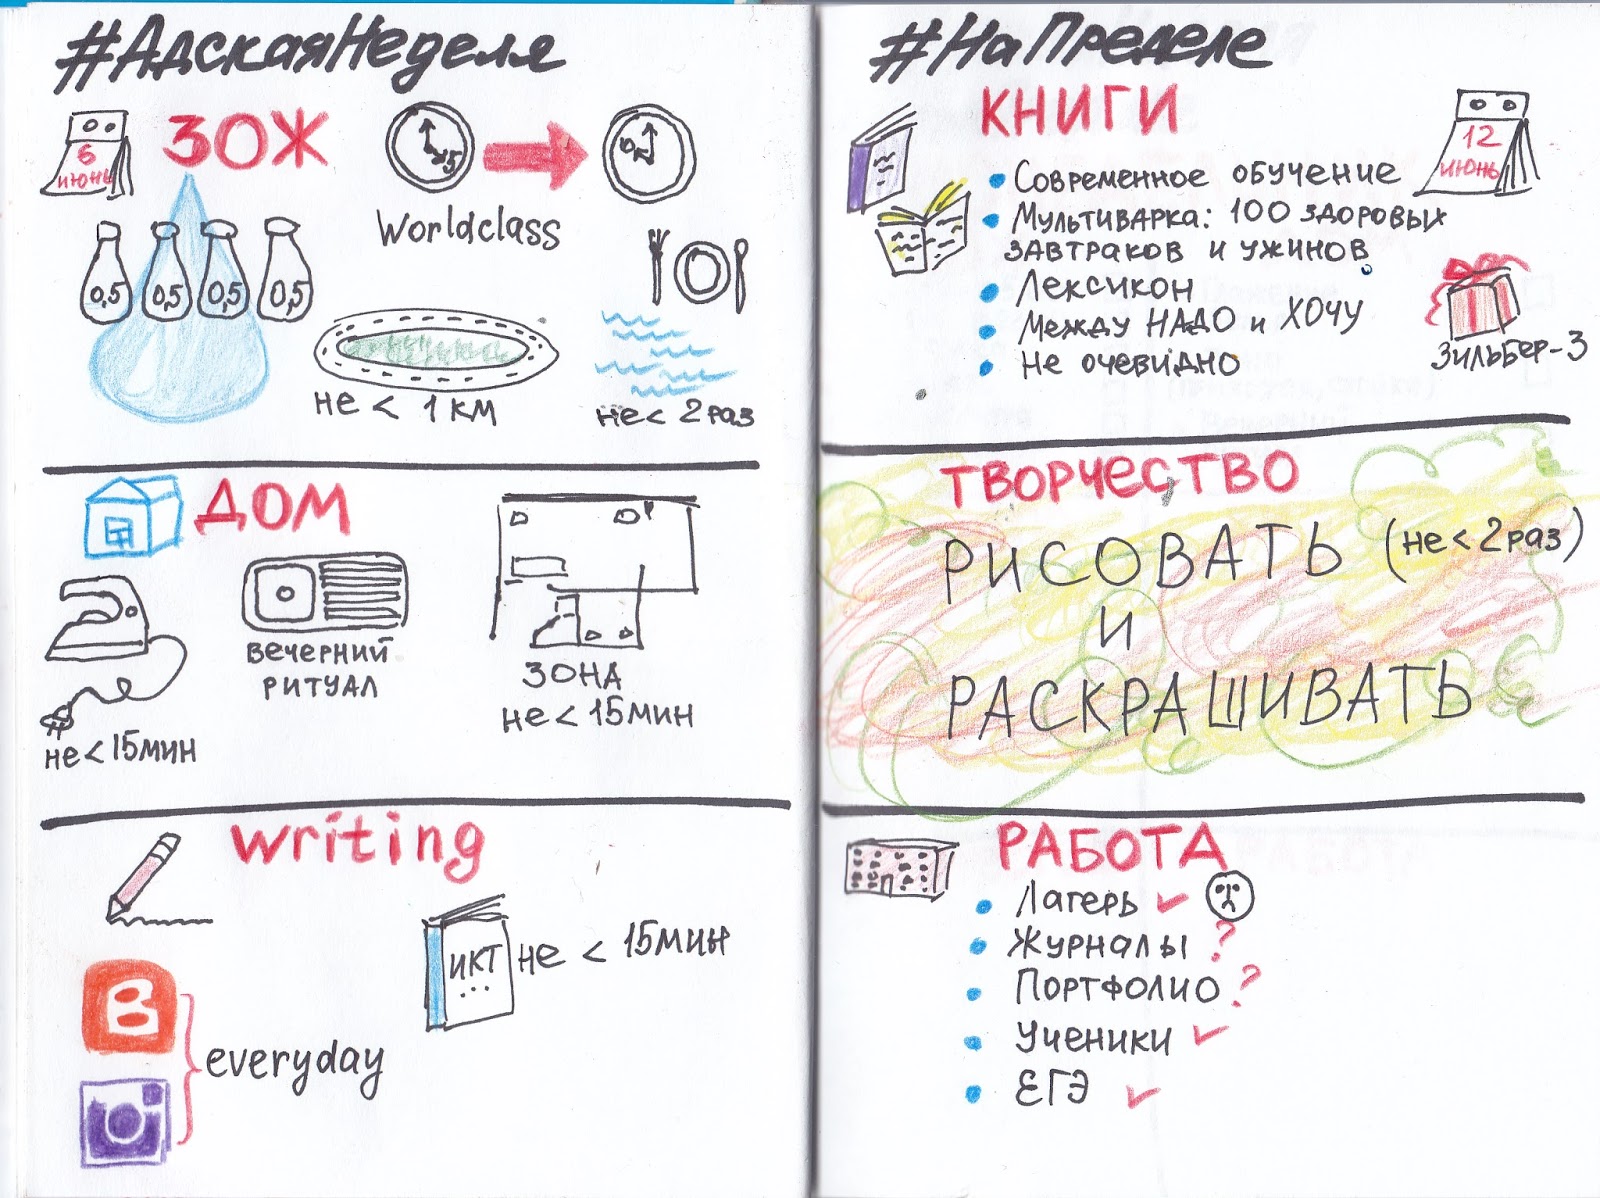 #АдскаяНеделя
6
июнь
ЗОЖ
5
Worldclass
0,5
0,5
0,5
0,5
не < 1 км
не < 2 раз
ДОМ
не < 15мин
вечерний
ритуал
ЗОНА
не < 15мин
writing
ИКТ
...
не < 15мин
B
everyday
#НаПределе
КНИГИ
12
июнь
• Современное обучение
• Мультиварка: 100 здоровых
завтраков и ужинов
• Лексикон
• Между НАДО и ХОЧУ
• Не очевидно
Зильбер-3
ТВОРЧЕСТВО
РИСОВАТЬ (не < 2 раз)
И
РАСКРАШИВАТЬ
РАБОТА
• Лагерь ✓
• Журналы ?
• Портфолио ?
• Ученики ✓
• ЕГЭ ✓